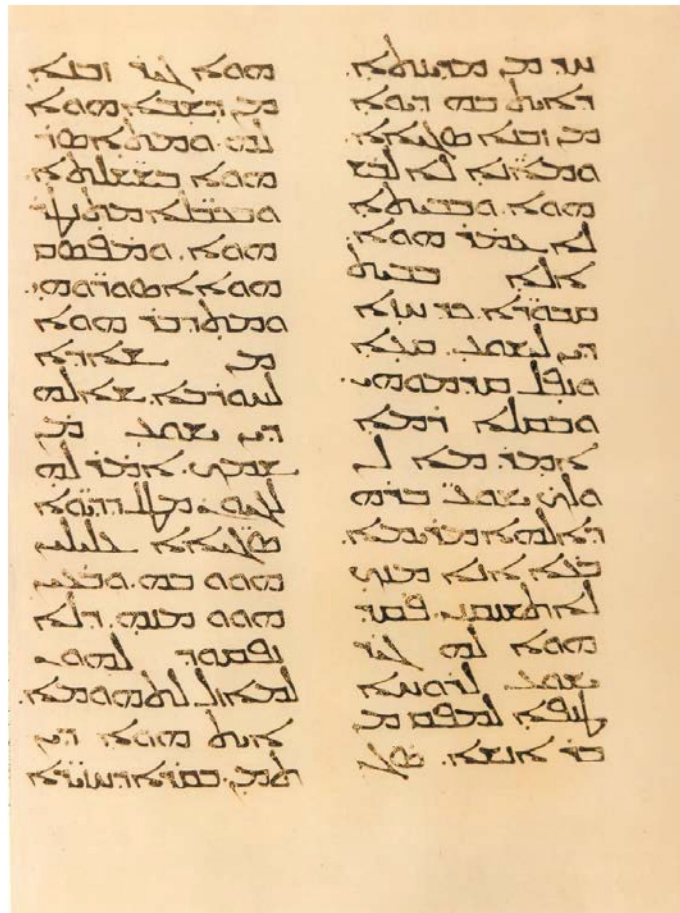 ܚܕ ܡܢ ܡܕܝܢܬܐ.
ܕܐܝܬ ܒܗ ܕܝܘܐ
ܡܢ ܙܒܢܐ ܣܓܝܐܐ.
ܘܡܐܢ̈ܐ ܠܐ ܠܒܫ
ܗܘܐ. ܘܒܒܝܬܐ
ܠܐ ܥܡܪ ܗܘܐ.
ܐܠܐ ܒܒܝܬ
ܩܒܘܪ̈ܐ. ܟܕ ܚܙܐ
ܕܝܢ ܠܝܫܘܥ. ܩܥܐ
ܘܢܦܠ ܩܕܡܘܗܝ.
ܘܒܩܠܐ ܪܡܐ
ܐܡܪ. ܡܐ ܠܢ
ܘܠܟ ܝܫܘܥ ܒܪܗ
ܕܐܠܗܐ ܡܪܝܡܐ.
ܒܥܐ ܐܢܐ ܡܢܟ
ܠܐ ܬܫܢܩܝܢܝ. ܦܩܕ
ܗܘܐ ܠܗ ܓܝܪ
ܝܫܘܥ ܠܪܘܚܐ
ܛܢܦܐ ܠܡܦܩ ܡܢ
ܒܪ ܐܢܫܐ. ܣܓܝ
ܗܘܐ ܓܝܪ ܙܒܢܐ
ܡܢ ܕܫܒܐ ܗܘܐ
ܠܗ. ܘܡܬܐܣܪ
ܗܘܐ ܒܫܫ̈ܠܬܐ
ܘܒܟܒ̈ܠܐ ܡܬܢܛܪ
ܗܘܐ. ܘܡܦܣܩ
ܗܘܐ ܐܣܘܪ̈ܘܗܝ.
ܘܡܬܕܒܪ ܗܘܐ
ܡܢ ܫܐܕܐ
ܠܚܘܪܒܐ. ܫܐܠܗ
ܕܝܢ ܝܫܘܥ ܡܢ
ܫܡܟ. ܐܡܪ ܠܗ
ܠܓܝܘܢ. ܡܛܠ ܕܕܝ̈ܘܐ
ܣܓܝ̈ܐܐ ܥܠܝܠܝܢ
ܗܘܘ ܒܗ. ܘܒܥܝܢ
ܗܘܘ ܡܢܗ. ܕܠܐ
ܢܦܩܘܕ ܠܗܘܢ
ܠܡܐܙܠ ܠܬܗܘܡܐ.
ܐܝܬ ܗܘܐ ܕܝܢ
ܬܡܢ. ܒܩܪܐ ܕܚܙܝܪ̈ܐ